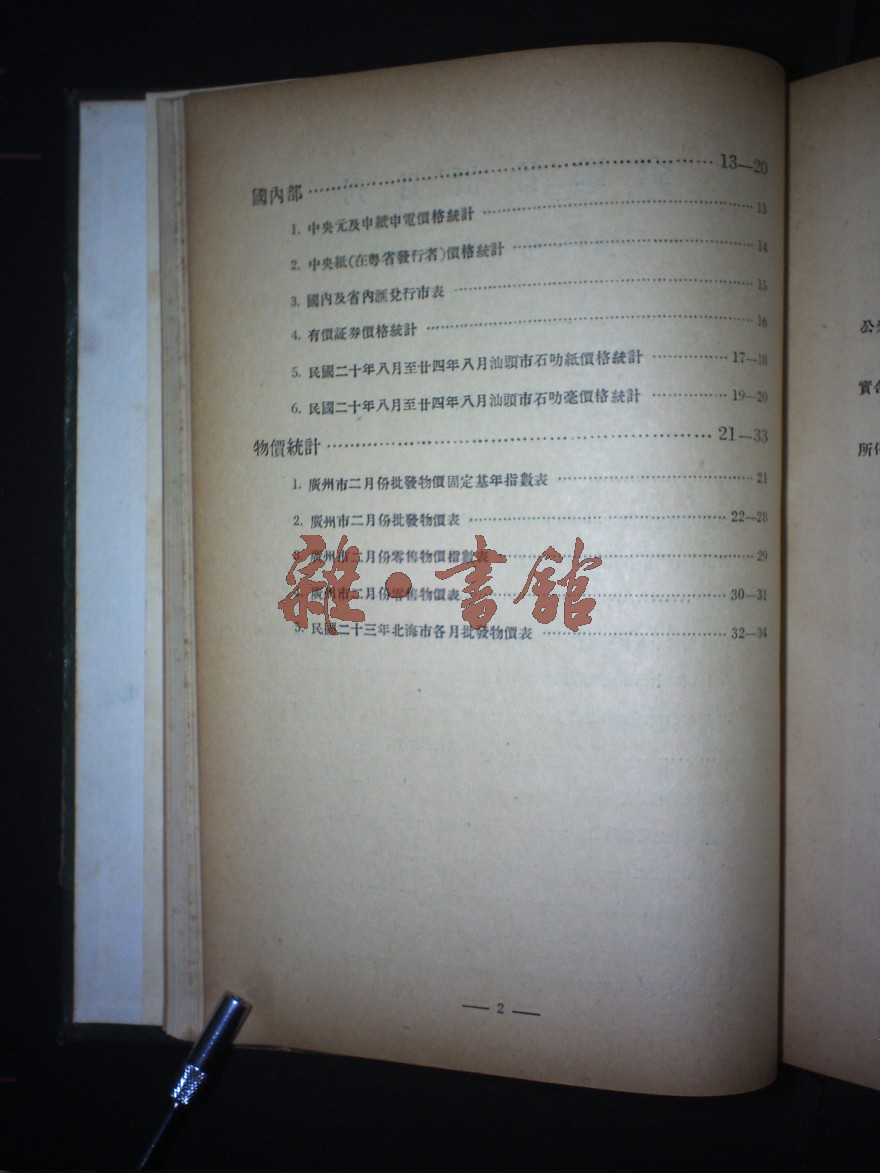 國內部 13—20
1. 中央元及申紙申電價格統計 13
2. 中央紙(在粵省發行者)價格統計 14
3. 國內及省內滙兌行市表 15
4. 有價証券價格統計 16
5. 民國二十年八月至廿四年八月汕頭市石叻紙價格統計 17—18
6. 民國二十年八月至廿四年八月汕頭市石叻毫價格統計 19—20
物價統計 21—33
1. 廣州市二月份批發物價固定基年指數表 21
2. 廣州市二月份批發物價表 22—28
3. 廣州市二月份零售物價指數表 29
4. 廣州市二月份零售物價表 30—31
5. 民國二十三年北海市各月批發物價表 32—34
雜·書館
— 2 —
實
所